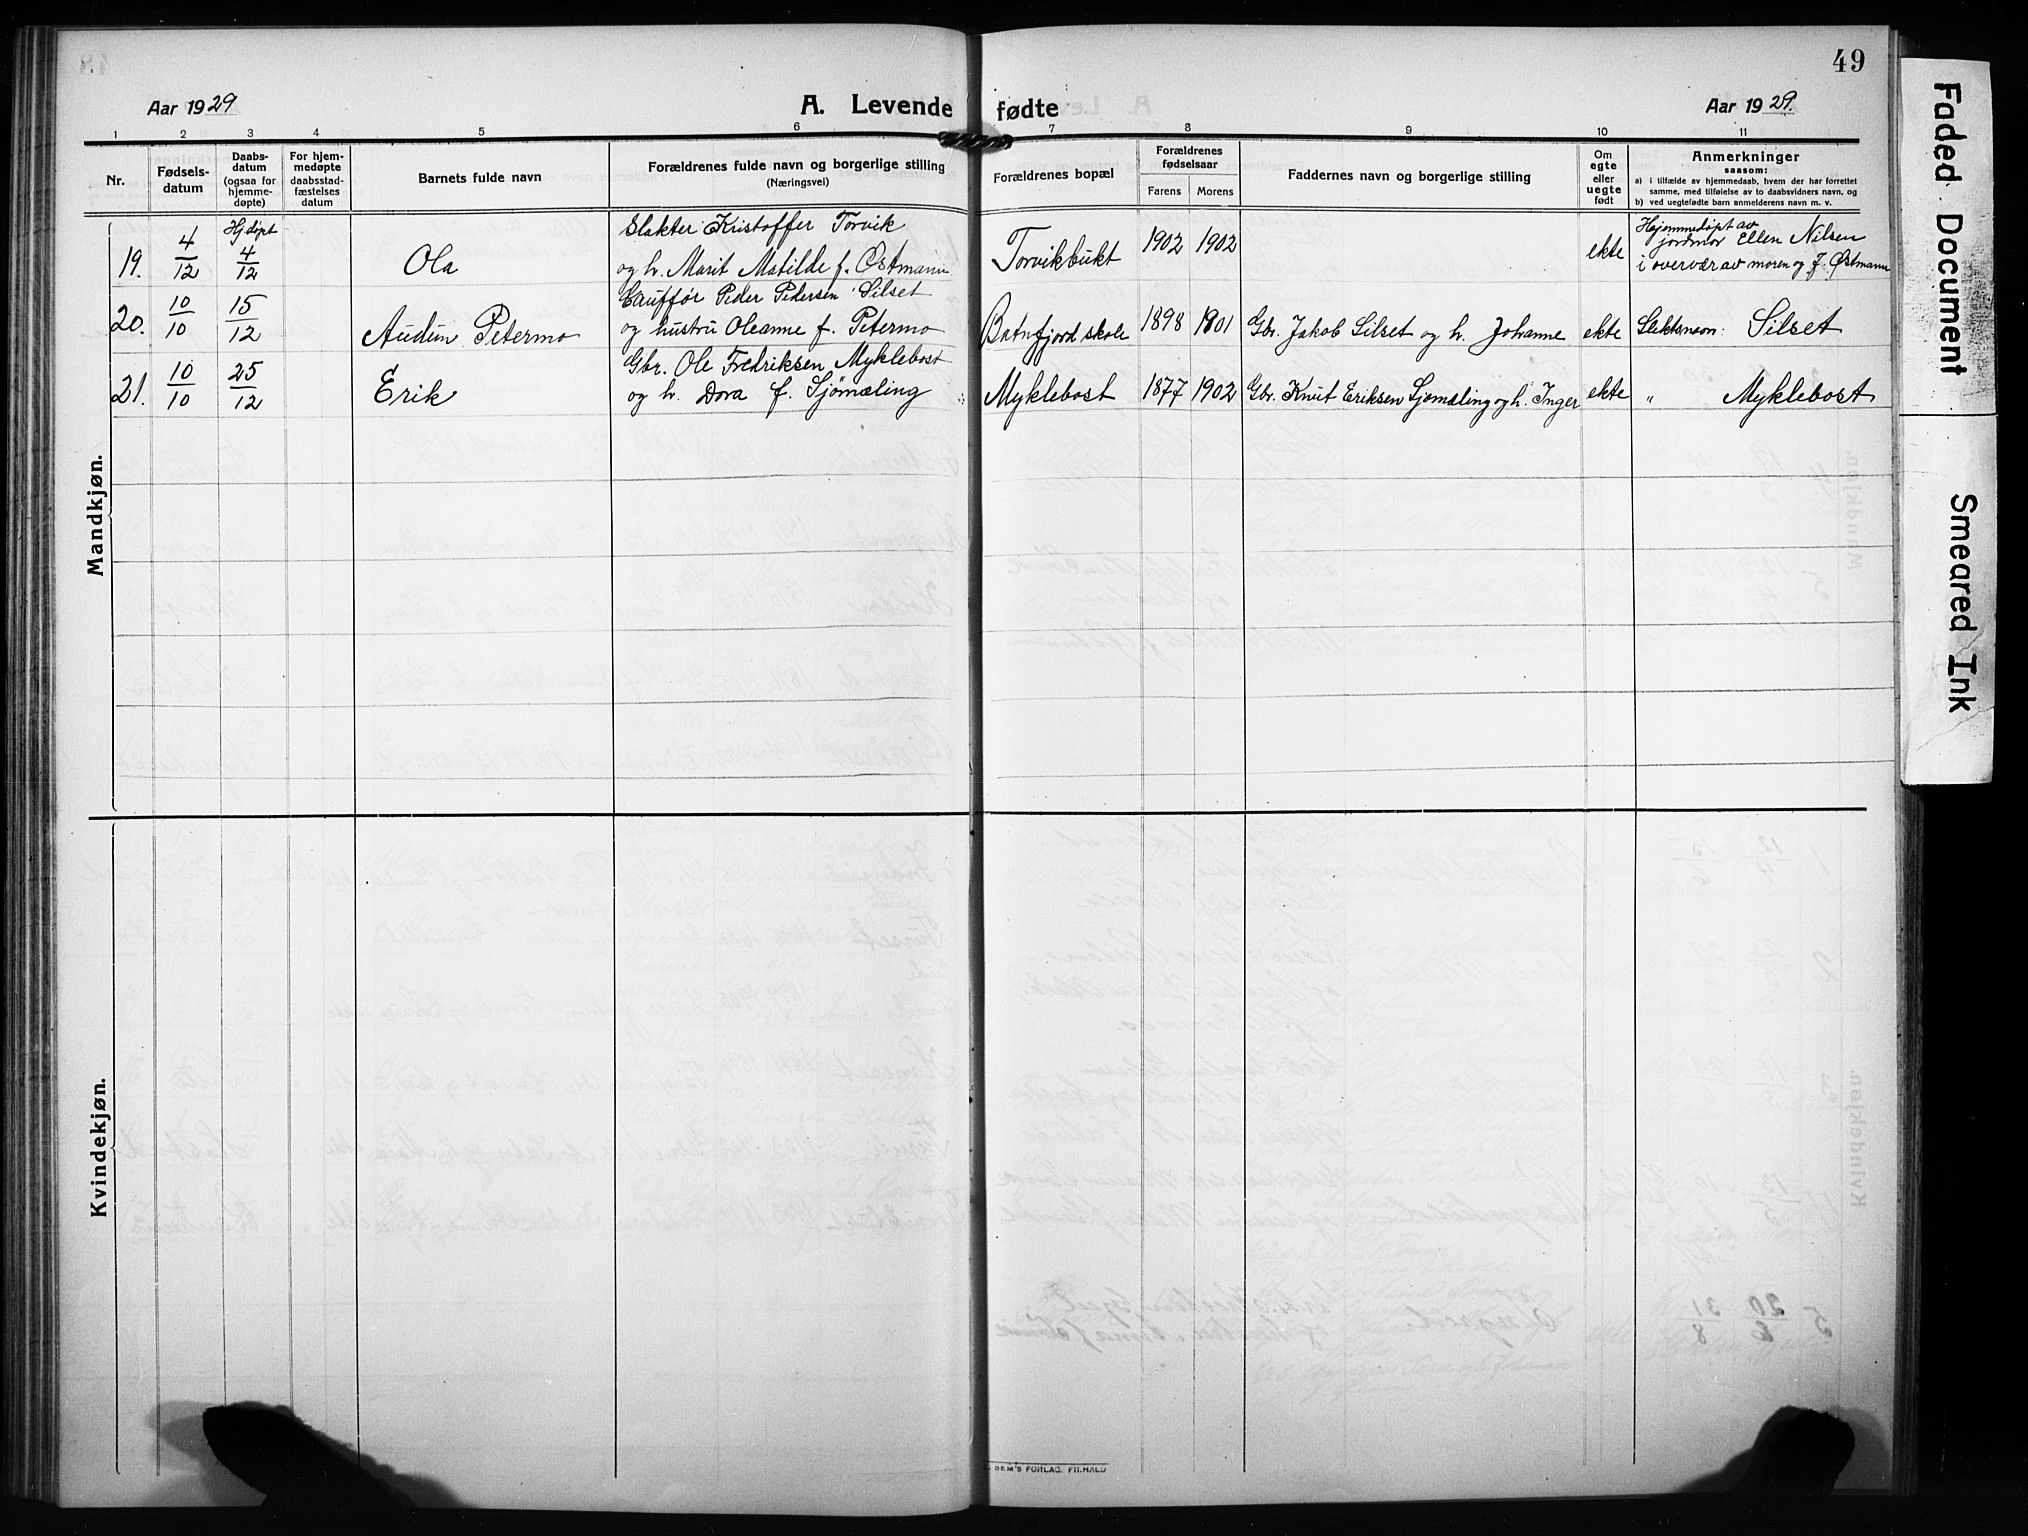 49
Aar 1929
A. Levende fødte
Aar 1929.
1 2 3 4 5 6 7 8 9 10 11
Nr.
Fødsels-
datum
Daabs-
datum
(ogsaa for
hjemme-
døpte)
For hjem-
medøpte
daabsstad-
fæstelses
datum
Barnets fulde navn
Forældrenes fulde navn og borgerlige stilling
(Næringsvei)
Forældrenes bopæl
Forældrenes
fødselsaar
Farens Morens
Faddernes navn og borgerlige stilling
Om
egte
eller
uegte
født
Anmerkninger
saasom:
a) i tilfælde av hjemmedaab, hvem der har forrettet
samme, med tilføielse av to daabsvidners navn, og
b) ved uegtefødte barn anmelderens navn m. v.
Mandkjøn.
19. 4/12 Hjdøpt 4/12 Ola
Slakter Kristoffer Torvik
og h. Marit Matilde f. Østmann
Torvikbukt 1902 1902 ekte
Hjemmedøpt av
jordmor Ellen Nilsen
i overvær av moren og f. Østmann
20. 10/10 15/12 Audun Petermo
Cauffør Peder Pedersen Silset
og hustru Oleanne f. Petermo
Batnfjord skole 1898 1901 Gbr. Jakob Silset og h. Johanne ekte Slektsnavn: Silset
21. 10/10 25/12 Erik
Gbr. Ole Fredriksen Myklebost
og h. Dora f. Sjømæling
Myklebost 1877 1902 Gbr. Knut Eriksen Sjømæling og h. Inger ekte " Myklebost
Kvindekjøn.
SEM'S FORLAG, FR.HALD
Faded Document
Smeared Ink